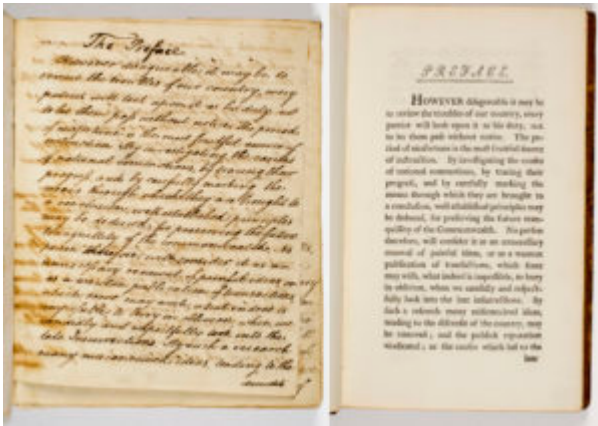 The Preface.
However disagreeable it may be to
the troubles of our country, every
patriot will look upon it as his duty, not
to let them pass without notice. The period
of misfortune is the most fruitful source of
instruction. By investigating the causes
of national commotions, by tracing their
progress, and by carefully marking the
means through which they are brought to
a conclusion, well established principles
may be deduced, for preserving the future
tranquillity of the Commonwealth. No
person therefore, will consider it as an
renewal of painful ideas, or
as a wanton publication of transactions,
which some may wish, what indeed is
impossible, to bury in oblivion, when we
carefully and respectfully look into the
late Insurrections. By such a research
many misconceived ideas, tending to the
PREFACE.
HOWEVER disagreeable it may be
to review the troubles of our country, every
patriot will look upon it as his duty, not
to let them pass without notice. The pe-
riod of misfortune is the most fruitful source
of instruction. By investigating the causes
of national commotions, by tracing their
progress, and by carefully marking the
means through which they are brought to
a conclusion, well established principles may
be deduced, for preserving the future tran-
quillity of the Commonwealth. No person
therefore, will consider it as an
renewal of painful ideas, or as a wanton
publication of transactions, which some
may wish, what indeed is impossible, to bury
in oblivion, when we carefully and respect-
fully look into the late insurrections. By
such a research many misconceived ideas,
tending to the discredit of the country, may
be removed; and the publick reputation
vindicated; as the causes which led to the
late